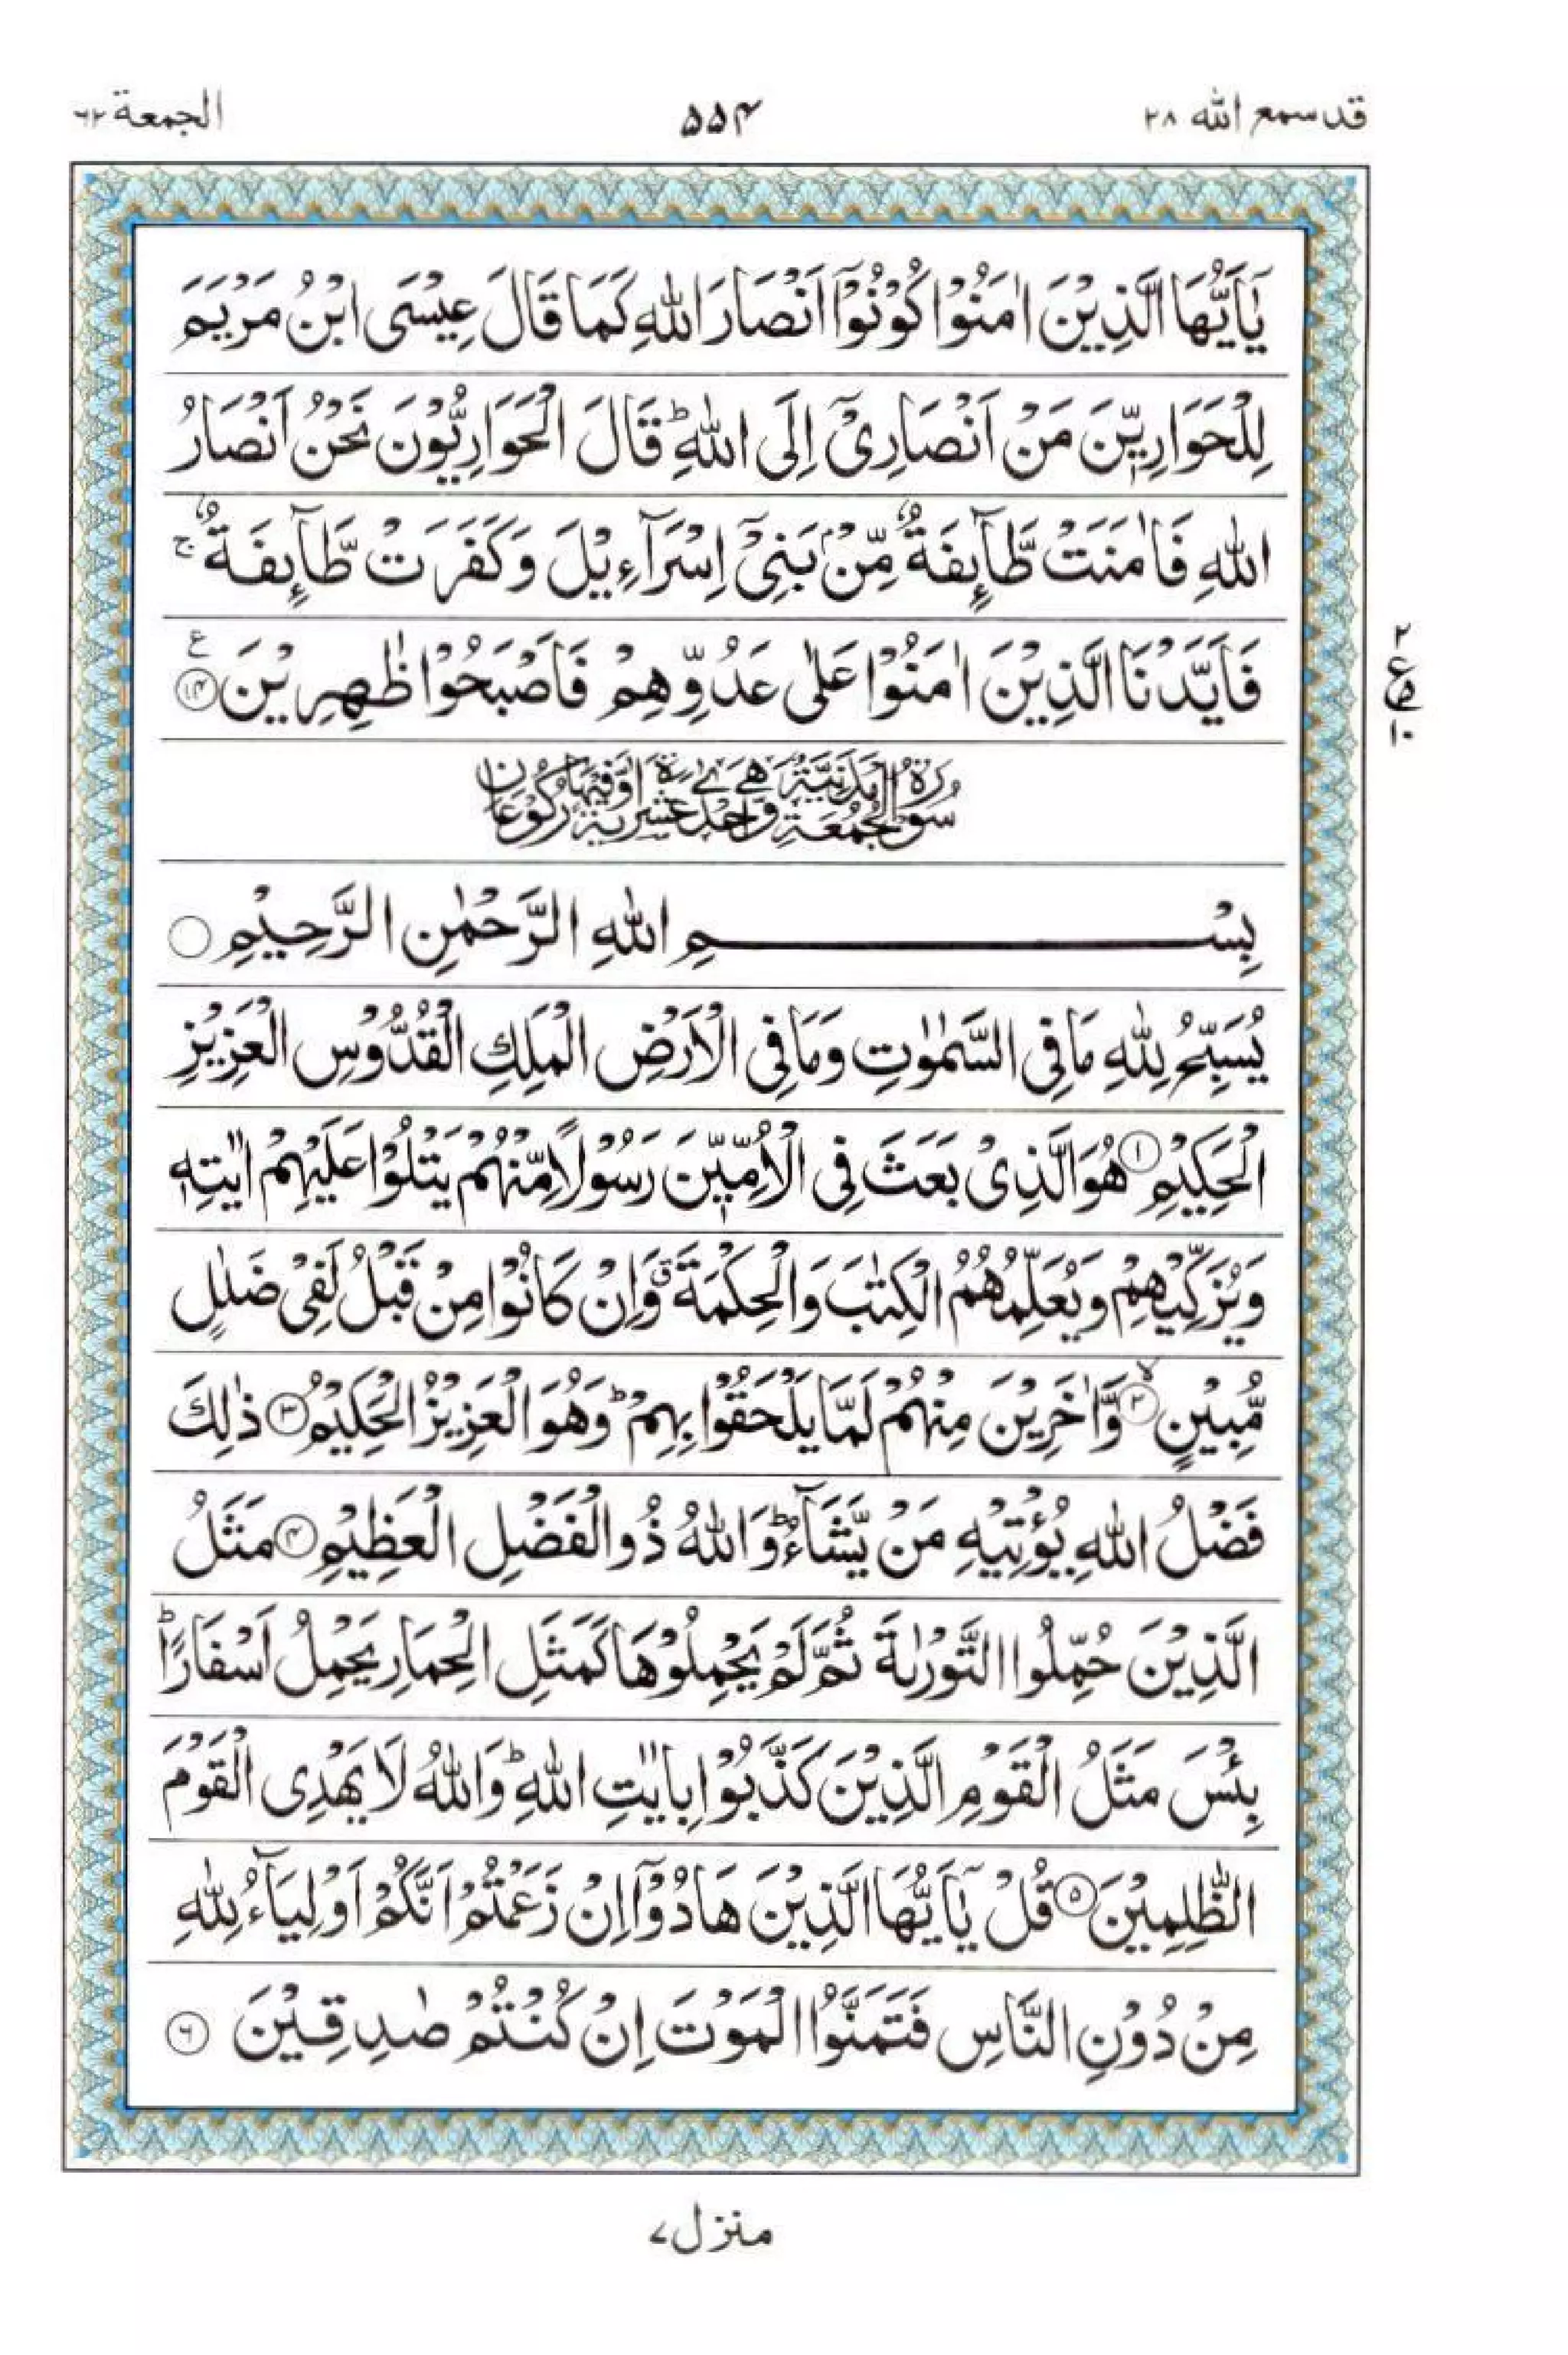 قد سمع الله ٢٨
۵۵۴
الجمعة ٦٢
يٰۤاَيُّهَا الَّذِيْنَ اٰمَنُوْا كُوْنُوْۤا اَنْصَارَ اللّٰهِ كَمَا قَالَ عِيْسَى ابْنُ مَرْيَمَ
لِلْحَوَارِيّٖنَ مَنْ اَنْصَارِيْۤ اِلَى اللّٰهِ ؕ قَالَ الْحَوَارِيُّوْنَ نَحْنُ اَنْصَارُ
اللّٰهِ فَاٰمَنَتْ طَّآىِٕفَةٌ مِّنْۢ بَنِيْۤ اِسْرَآءِيْلَ وَكَفَرَتْ طَّآىِٕفَةٌ ۚ
فَاَيَّدْنَا الَّذِيْنَ اٰمَنُوْا عَلٰى عَدُوِّهِمْ فَاَصْبَحُوْا ظٰهِرِيْنَ ۱۴ ع
٢ ع ١٠
سُوْرَةُ الْجُمُعَةِ مَدَنِيَّةٌ
بِسْمِ اللّٰهِ الرَّحْمٰنِ الرَّحِيْمِ
يُسَبِّحُ لِلّٰهِ مَا فِي السَّمٰوٰتِ وَمَا فِي الْاَرْضِ الْمَلِكِ الْقُدُّوْسِ الْعَزِيْزِ
الْحَكِيْمِ ۱ هُوَ الَّذِيْ بَعَثَ فِي الْاُمِّيّٖنَ رَسُوْلًا مِّنْهُمْ يَتْلُوْا عَلَيْهِمْ اٰيٰتِهٖ
وَيُزَكِّيْهِمْ وَيُعَلِّمُهُمُ الْكِتٰبَ وَالْحِكْمَةَ ۗ وَاِنْ كَانُوْا مِنْ قَبْلُ لَفِيْ ضَلٰلٍ
مُّبِيْنٍ ۲ۙ وَّاٰخَرِيْنَ مِنْهُمْ لَمَّا يَلْحَقُوْا بِهِمْ ؕ وَهُوَ الْعَزِيْزُ الْحَكِيْمُ ۳ ذٰلِكَ
فَضْلُ اللّٰهِ يُؤْتِيْهِ مَنْ يَّشَآءُ ؕ وَاللّٰهُ ذُو الْفَضْلِ الْعَظِيْمِ ۴ مَثَلُ
الَّذِيْنَ حُمِّلُوا التَّوْرٰىةَ ثُمَّ لَمْ يَحْمِلُوْهَا كَمَثَلِ الْحِمَارِ يَحْمِلُ اَسْفَارًا ؕ
بِئْسَ مَثَلُ الْقَوْمِ الَّذِيْنَ كَذَّبُوْا بِاٰيٰتِ اللّٰهِ ؕ وَاللّٰهُ لَا يَهْدِي الْقَوْمَ
الظّٰلِمِيْنَ ۵ قُلْ يٰۤاَيُّهَا الَّذِيْنَ هَادُوْۤا اِنْ زَعَمْتُمْ اَنَّكُمْ اَوْلِيَآءُ لِلّٰهِ
مِنْ دُوْنِ النَّاسِ فَتَمَنَّوُا الْمَوْتَ اِنْ كُنْتُمْ صٰدِقِيْنَ ۶
منزل ۷